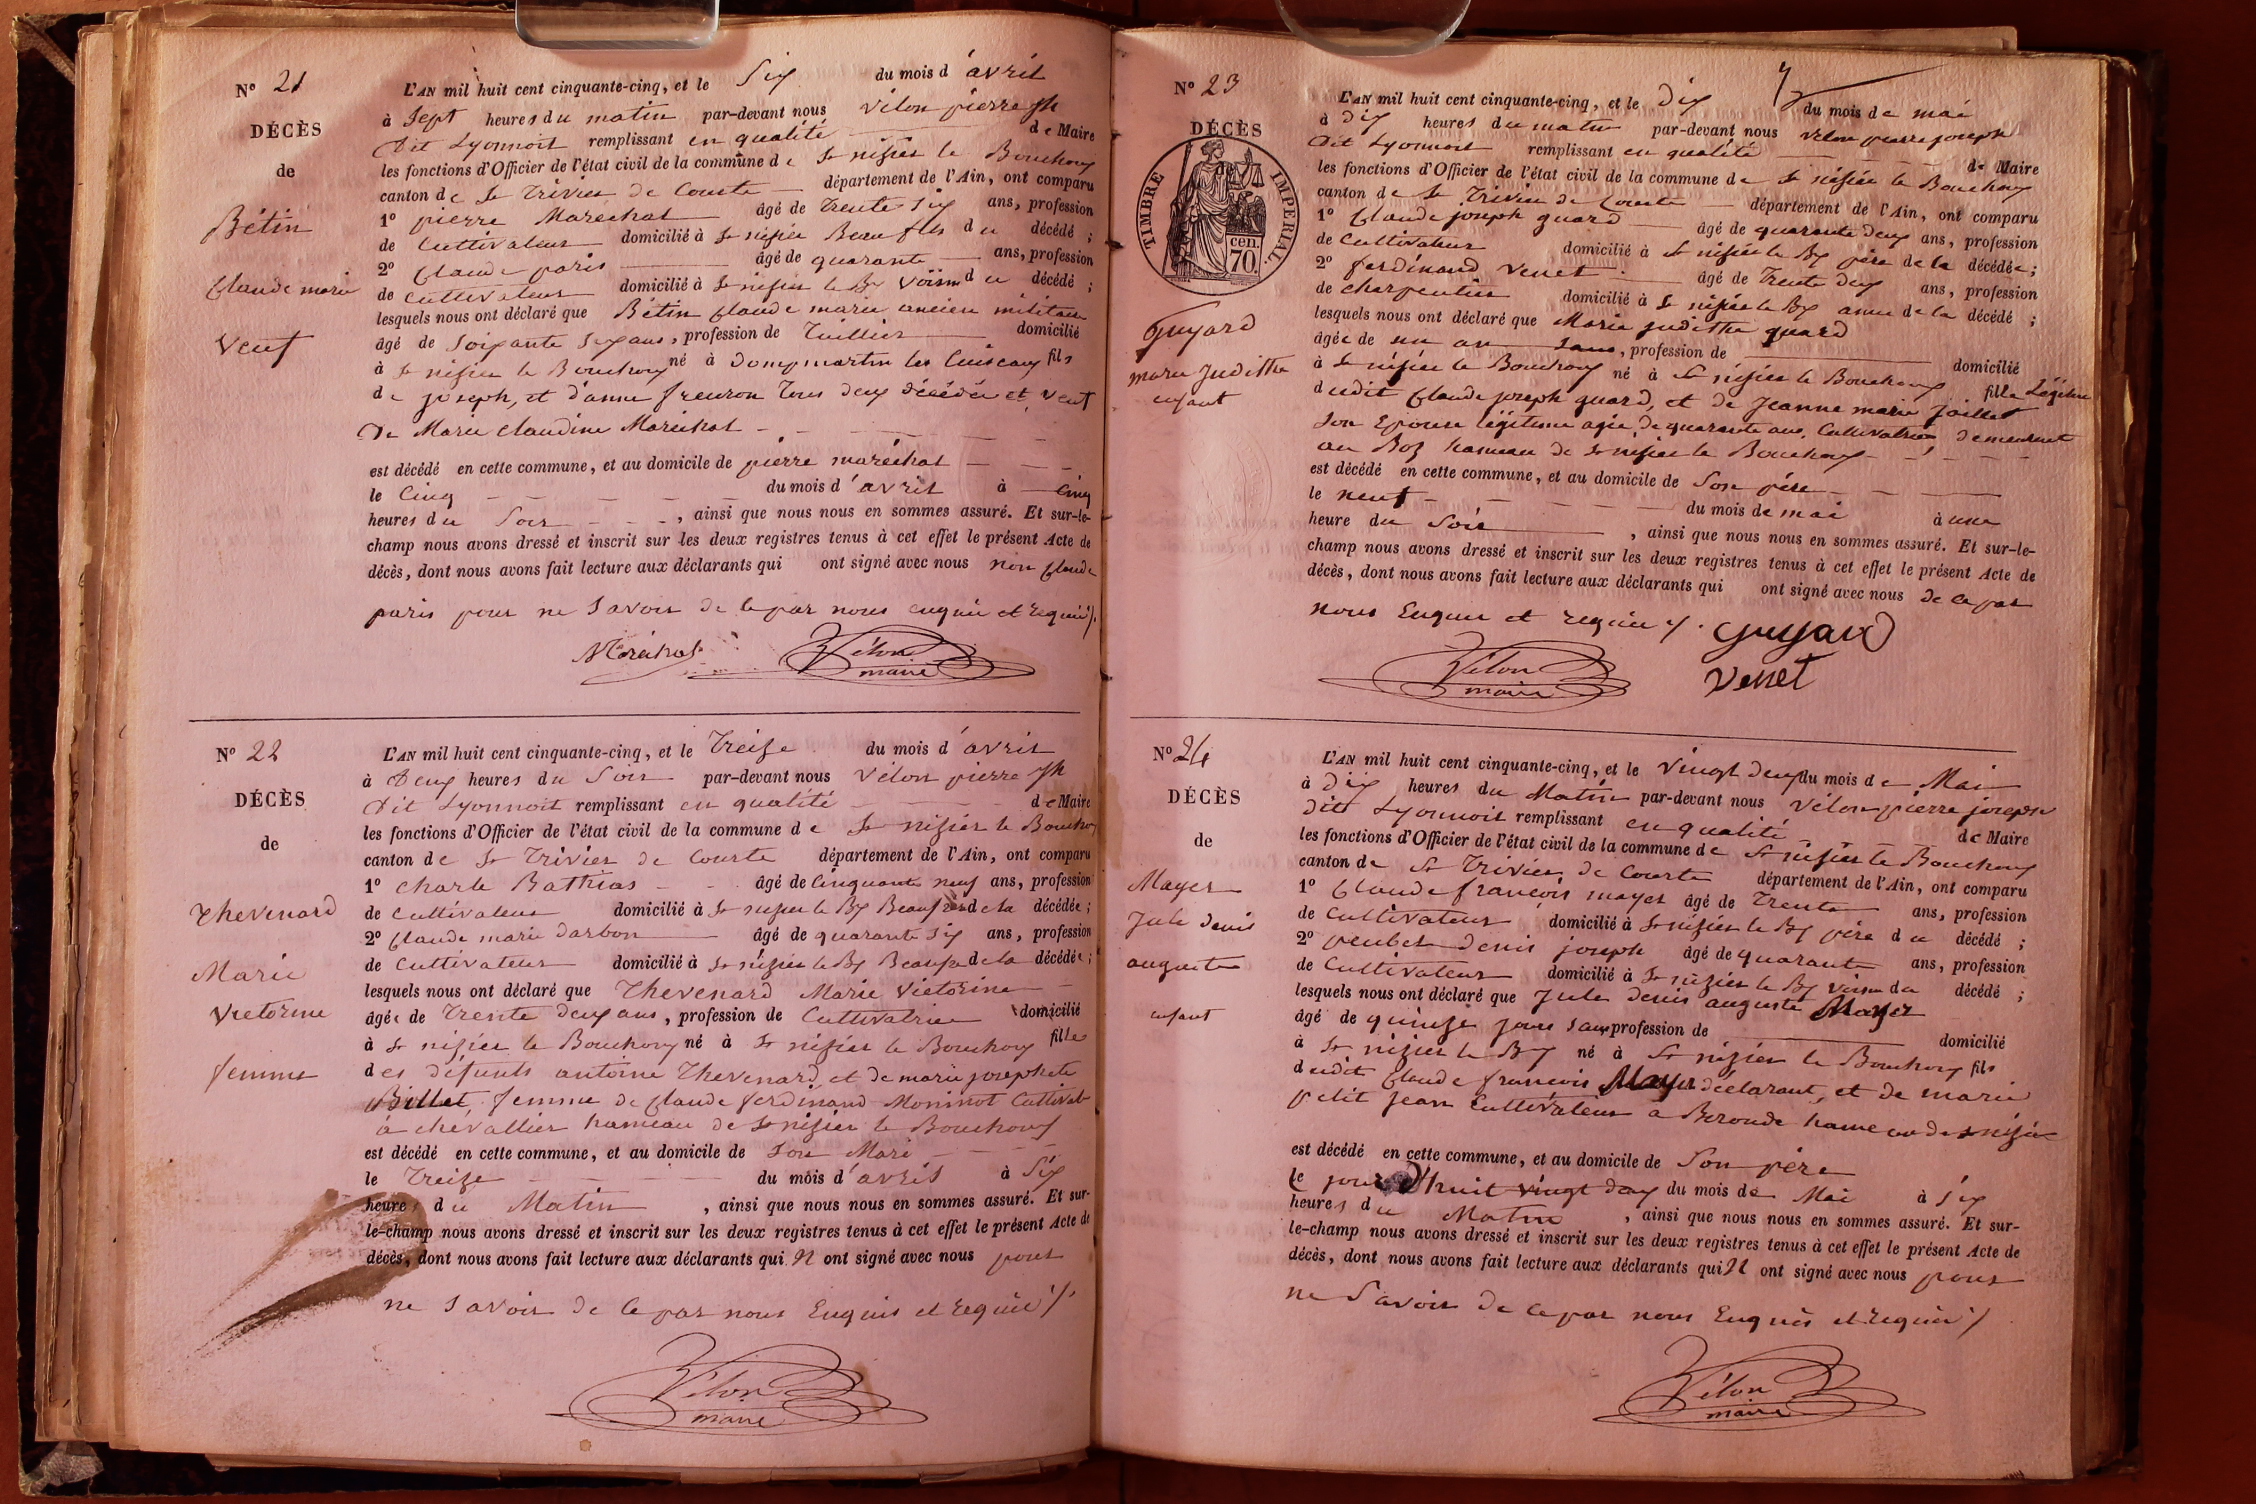 N° 21
DÉCÈS
de
Bétin
Claude marie
Veuf
L'AN mil huit cent cinquante-cinq, et le Six du mois d'avril
à Sept heures du matin par-devant nous Vélon pierre jh
dit Lyonnoit remplissant en qualité de Maire
les fonctions d'Officier de l'état civil de la commune de St nisier le Bouchoux
canton de St Trivier de Courte département de l'Ain, ont comparu
1° pierre Maréchal âgé de Trente Six ans, profession
de Cultivateur domicilié à St nisier Beau fils du décédé ;
2° Claude paris âgé de quarante ans, profession
de Cultivateur domicilié à St nisier le Bx Voisin du décédé ;
lesquels nous ont déclaré que Bétin Claude marie ancien militaire
âgé de Soixante Six ans, profession de Tuillier domicilié
à St nisier le Bouchoux né à Dompmartin les Cuiseaux fils
de joseph, et d'anne freuron Tous deux décédés et Veuf
De Marie Claudine Maréchal
est décédé en cette commune, et au domicile de pierre maréchal
le Cinq du mois d'avril à Cinq
heures du Soir , ainsi que nous nous en sommes assuré. Et sur-le-
champ nous avons dressé et inscrit sur les deux registres tenus à cet effet le présent Acte de
décès, dont nous avons fait lecture aux déclarants qui ont signé avec nous non Claude
paris pour ne Savoir de ce par nous enquis et requis /.
Maréchal Vélon
maire
N° 22
DÉCÈS
de
Thevenard
Marie
Victorine
femme
L'AN mil huit cent cinquante-cinq, et le Treize du mois d'avril
à Deux heures du Soir par-devant nous Vélon pierre jh
Dit Lyonnoit remplissant en qualité de Maire
les fonctions d'Officier de l'état civil de la commune de St nisier le Bouchoux
canton de St Trivier de Courte département de l'Ain, ont comparu
1° Charle Bathias âgé de Cinquante neuf ans, profession
de Cultivateur domicilié à St nisier le Bx Beaufrère de la décédée ;
2° Claude marie Darbon âgé de quarante Six ans, profession
de Cultivateur domicilié à St nisier le Bx de la décédée ;
lesquels nous ont déclaré que Thevenard Marie Victorine
âgée de Trente Deux ans, profession de Cultivatrice domicilié
à St nisier le Bouchoux né à St nisier le Bouchoux fille
des défunts antoine Thevenard, et de marie josephete
Billet, femme de Claude ferdinand Moninot Cultivat
à Chevallier hameau de St nisier le Bouchoux
est décédé en cette commune, et au domicile de Son Mari
le Treize du mois d'avril à Six
heures du Matin , ainsi que nous nous en sommes assuré. Et sur-
le-champ nous avons dressé et inscrit sur les deux registres tenus à cet effet le présent Acte de
décès, dont nous avons fait lecture aux déclarants qui n ont signé avec nous pour
ne Savoir de Ce par nous Enquis et requis /.
Vélon
maire
N° 23
DÉCÈS
TIMBRE IMPÉRIAL.
cen.
70.
Guyard
marie Judithe
enfant
L'AN mil huit cent cinquante-cinq, et le dix du mois de mai
à dix heures du matin par-devant nous Vélon pierre joseph
Dit Lyonnoit remplissant en qualité de Maire
les fonctions d'Officier de l'état civil de la commune de St nisier le Bouchoux
canton de St Trivier de Courte département de l'Ain, ont comparu
1° Claude joseph guard âgé de quarante deux ans, profession
de Cultivateur domicilié à St nisier le Bx père de la décédée ;
2° ferdinand Venet âgé de Trente deux ans, profession
de charpentier domicilié à St nisier le Bx de la décédé ;
lesquels nous ont déclaré que Marie judithe guard
âgée de un an Sans, profession de domicilié
à St nisier le Bouchoux né à St nisier le Bouchoux fille Légitime
dudit Claude joseph guard, et de Jeanne marie jaillet
Son Epouse légitime agée de quarante ans, Cultivatrice, demeurant
au Boz hameau de St nisier le Bouchoux
est décédé en cette commune, et au domicile de Son père
le neuf du mois de mai à une
heure du Soir , ainsi que nous nous en sommes assuré. Et sur-le-
champ nous avons dressé et inscrit sur les deux registres tenus à cet effet le présent Acte de
décès, dont nous avons fait lecture aux déclarants qui ont signé avec nous de ce par
nous Enquis et requis /. Guyard
Vélon Venet
maire
N° 24
DÉCÈS
de
Mayer
Jule Denis
auguste
enfant
L'AN mil huit cent cinquante-cinq, et le Vingt deux du mois de Mai
à dix heures du Matin par-devant nous Vélon pierre joseph
dit Lyonnoit remplissant en qualité de Maire
les fonctions d'Officier de l'état civil de la commune de St nisier le Bouchoux
canton de St Trivier de Courte département de l'Ain, ont comparu
1° Claude francois mayer âgé de Trente ans, profession
de Cultivateur domicilié à St nisier le Bx père du décédé ;
2° denis joseph âgé de quarante ans, profession
de Cultivateur domicilié à St nisier le Bx Voisin du décédé ;
lesquels nous ont déclaré que Jule denis auguste Mayer
âgé de quinze jours Sans profession de domicilié
à St nisier le Bx né à St nisier le Bouchoux fils
dudit Claude francois Mayer déclarant, et de marie
petit jean Cultivateur a Beroude hameau de St nisier
est décédé en cette commune, et au domicile de Son père
le jour d'huit vingt deux du mois de Mai à Six
heures du Matin , ainsi que nous nous en sommes assuré. Et sur-
le-champ nous avons dressé et inscrit sur les deux registres tenus à cet effet le présent Acte de
décès, dont nous avons fait lecture aux déclarants qui n ont signé avec nous pour
ne Savoir de ce par nous Enquis et requis /
Vélon
maire